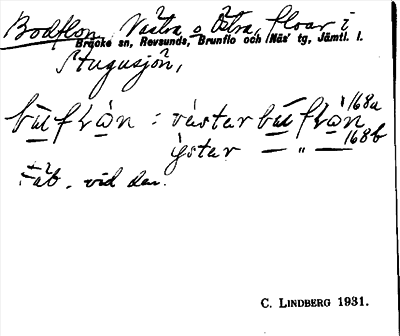 Bodflon, Västra o Östra, floar i
Bräcke sn, Revsunds, Brunflo och Näs' tg, Jämtl. l.
Ångsjön,
büflån : västar büflån 168a
ÿstar — „ — 168b
Fäb. vid den.
C. LINDBERG 1931.